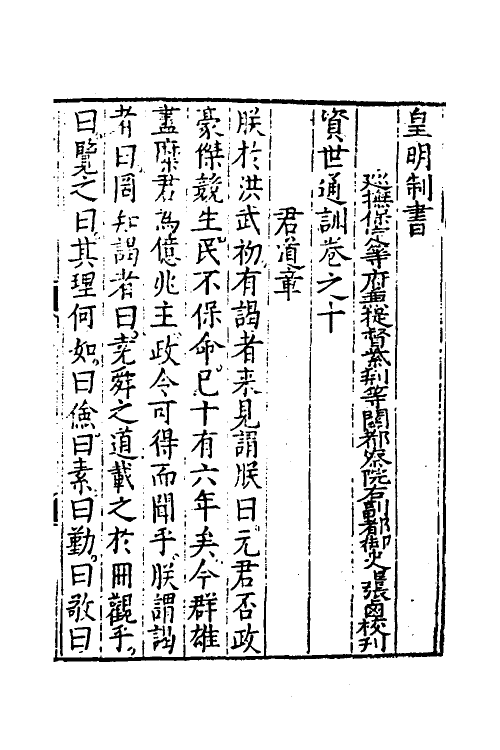 皇明制書
巡撫保定等府兼提督紫荊等關都察院右副都御史張鹵校刋
資世通訓卷之十
君道章
朕於洪武初有謁者来見謂朕曰元君否政
豪傑競生民不保命已十有六年矣今群雄
盡槩君為億兆主政令可得而聞乎朕謂謁
者曰罔知謁者曰堯舜之道載之於冊觀乎
曰覽之曰其理何如曰儉曰素曰勤曰敬曰